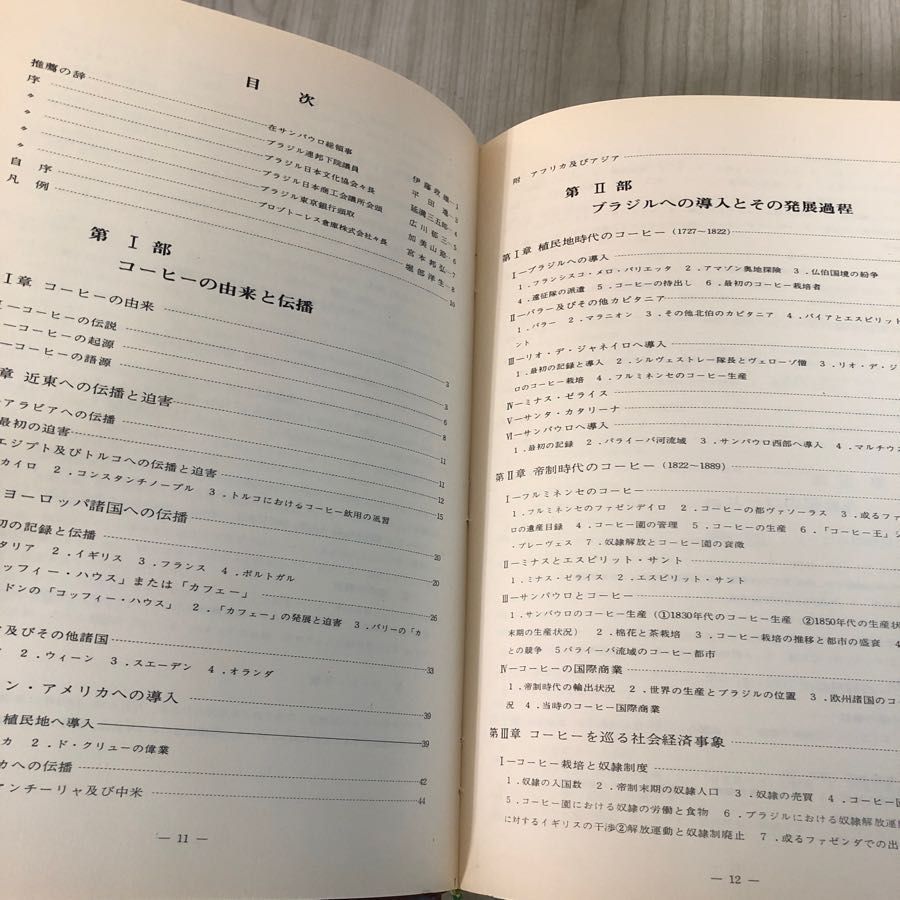 目次
推薦の辞
序
々
々
々
々
自序
凡例
在サンパウロ総領事
ブラジル連邦下院議員
ブラジル日本文化協会々長
ブラジル日本商工会議所会頭
ブラジル東京銀行頭取
ブロゾトーレス倉庫株式会社々長
伊藤政雄 1
平田進 3
延満三五郎 4
広川郁三 5
加美山 6
宮本邦弘 7
堀部洋生 8
10
第Ⅰ部
コーヒーの由来と伝播
Ⅰ章 コーヒーの由来 3
コーヒーの伝説 3
ーコーヒーの起源 6
ーコーヒーの語源 8
章 近東への伝播と迫害 11
アラビアへの伝播 11
最初の迫害 12
エジプト及びトルコへの伝播と迫害 15
カイロ 2.コンスタンチノーブル 3.トルコにおけるコーヒー飲用の風習
ヨーロッパ諸国への伝播 20
初の記録と伝播 20
タリア 2.イギリス 3.フランス 4.ポルトガル
ッフィー・ハウス」または「カフェー」 26
ドンの「コッフィー・ハウス」 2.「カフェー」の発展と迫害 3.パリーの「カ
及びその他諸国 33
2.ウィーン 3.スエーデン 4.オランダ
ン・アメリカへの導入 39
植民地へ導入 39
カ 2.ド・クリューの偉業
カへの伝播 42
アンチーリャ及び中米 44
— 11 —
附 アフリカ及びアジア
第Ⅱ部
ブラジルへの導入とその発展過程
第Ⅰ章 植民地時代のコーヒー (1727~1822)
Ⅰ—ブラジルへの導入
1.フランシスコ・メロ・パリエッタ 2.アマゾン奥地探険 3.仏伯国境の紛争
4.遠征隊の派遣 5.コーヒーの持出し 6.最初のコーヒー栽培者
Ⅱ—パラー及びその他カピタニア
1.パラー 2.マラニオン 3.その他北伯のカピタニア 4.バイアとエスピリット
ント
Ⅲ—リオ・デ・ジャネイロへ導入
1.最初の記録と導入 2.シルヴェストレー隊長とヴェローゾ僧 3.リオ・デ・ジ
ロのコーヒー栽培 4.フルミネンセのコーヒー生産
Ⅳ—ミナス・ゼライス
Ⅴ—サンタ・カタリーナ
Ⅵ—サンパウロへ導入
1.最初の記録 2.パライーバ河流域 3.サンパウロ西部へ導入 4.マルチウス
第Ⅱ章 帝制時代のコーヒー (1822~1889)
Ⅰ—フルミネンセのコーヒー
1.フルミネンセのファゼンデイロ 2.コーヒーの都ヴァソーラス 3.或るファ
ロの遺産目録 4.コーヒー園の管理 5.コーヒーの生産 6.「コーヒー王」ジ
・ブレーヴェス 7.奴隷解放とコーヒー園の衰微
Ⅱ—ミナスとエスピリット・サント
1.ミナス・ゼライス 2.エスピリット・サント
Ⅲ—サンパウロとコーヒー
1.サンパウロのコーヒー生産 (①1830年代のコーヒー生産 ②1850年代の生産状
末期の生産状況) 2.棉花と茶栽培 3.コーヒー栽培の推移と都市の盛衰 4
との競争 5パライーバ流域のコーヒー都市
Ⅳ—コーヒーの国際商業
1.帝制時代の輸出状況 2.世界の生産とブラジルの位置 3.欧州諸国のコー
況 4.当時のコーヒー国際商業
第Ⅲ章 コーヒーを巡る社会経済事象
Ⅰ—コーヒー栽培と奴隷制度
1.奴隷の入国数 2.帝制末期の奴隷人口 3.奴隷の売買 4.コーヒー園
5.コーヒー園における奴隷の労働と食物 6.ブラジルにおける奴隷解放運動
に対するイギリスの干渉②解放運動と奴隷制廃止 7.或るファゼンダでの出
— 12 —